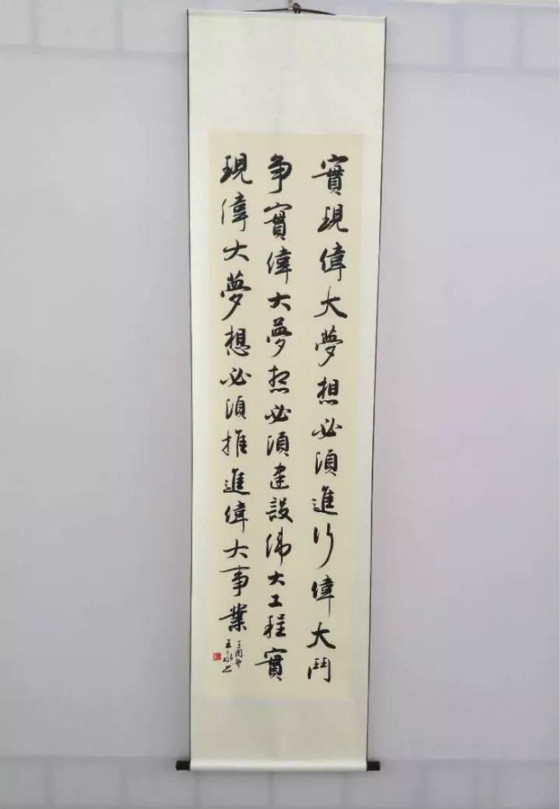 實現偉大夢想必須進行偉大鬥
争實偉大夢想必須建設偉大工程實
現偉大夢想必須推進偉大事業